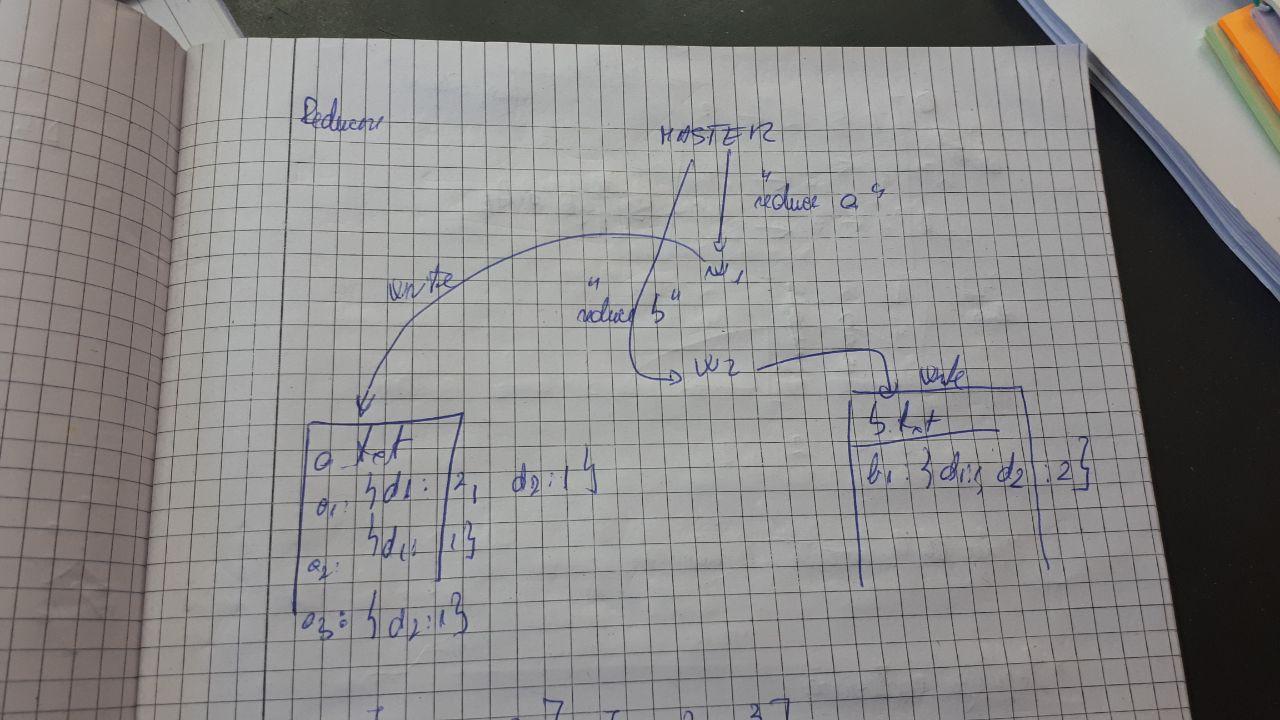 MASTER
"reduce a"
W1
write
"reduce b"
W2
write
a.txt
a1: {d1: 2, d2:1}
{d1: 1}
a2:
a3: {d2:1}
b.txt
b1: {d1:1; d2:2}